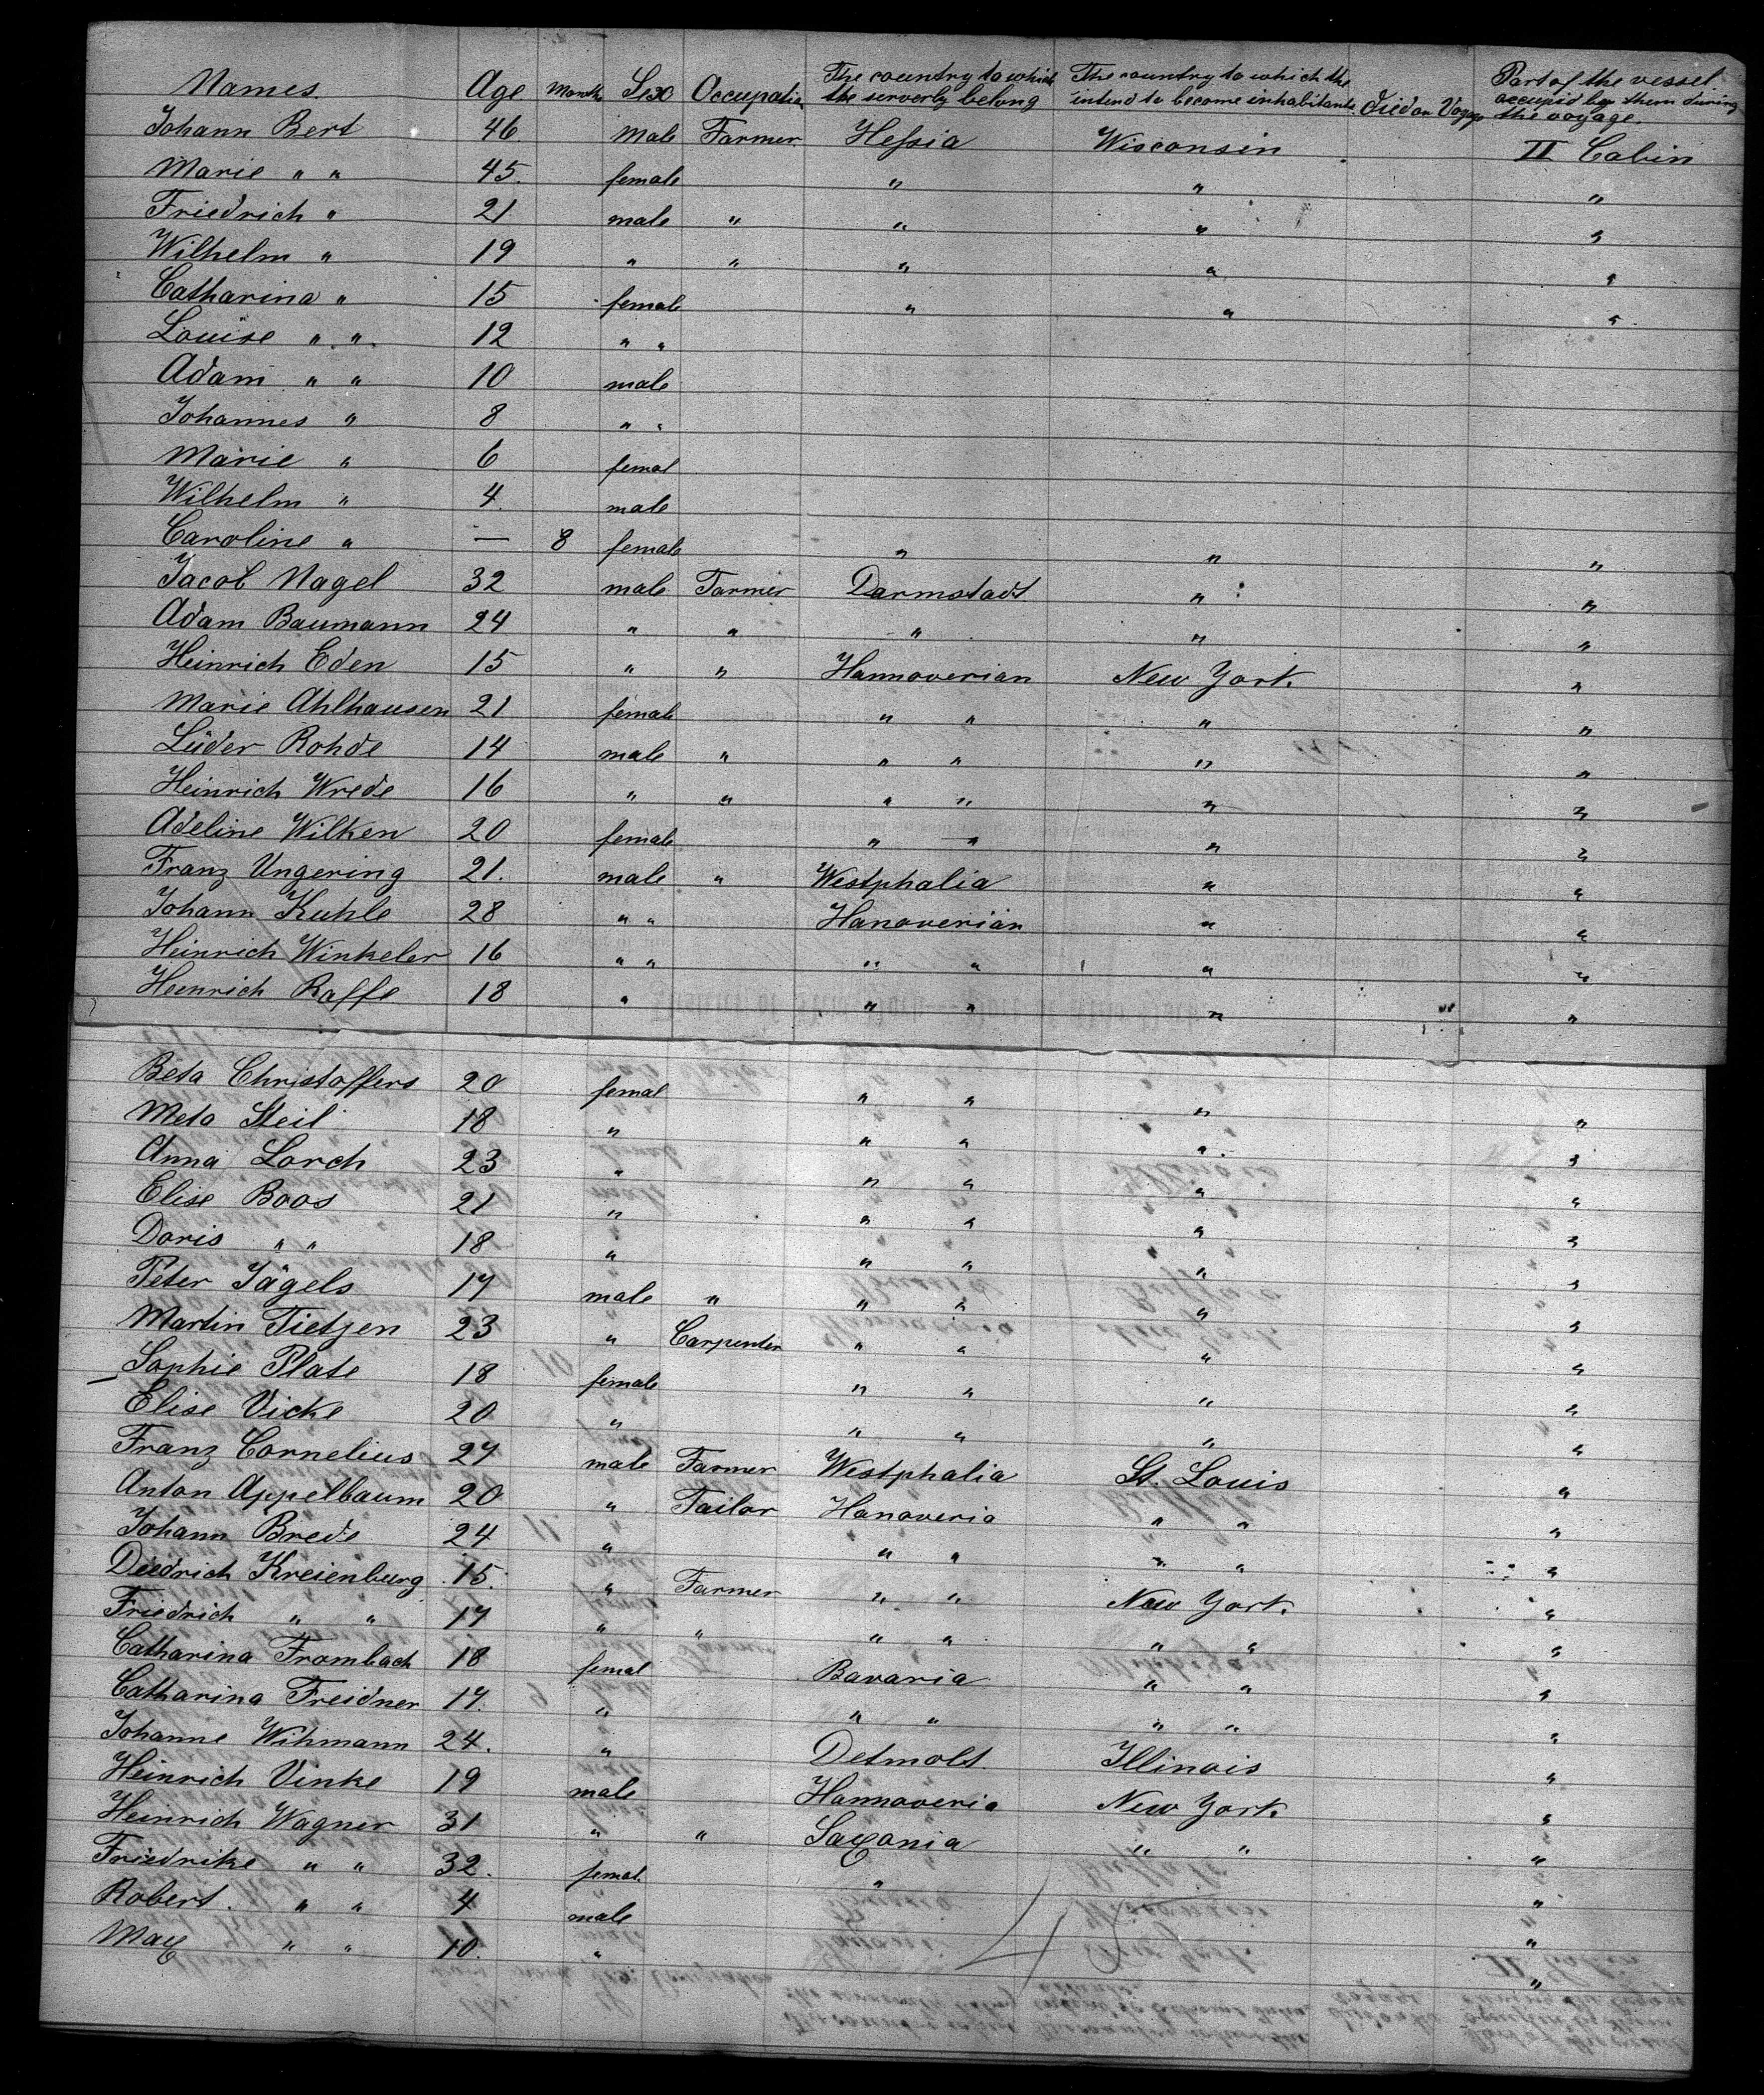 Names Age Month Sex Occupation The country to which the severely belong The country to which the intend to become inhabitants Died on Voyage Part of the vessel occupid by them during the voyage.
Johann Bert 46 Male Farmer Hessia Wisconsin II Cabin
Marie " " 45. female " " "
Friedrich " 21 male " " " "
Wilhelm " 19 " " " " "
Catharina " 15 female " " "
Louise " " 12 " "
Adam " " 10 male
Johannes " 8 " "
Marie " 6 femal
Wilhelm " 4. male
Caroline " — 8 female " " "
Jacob Nagel 32 male Farmer Darmstadt " "
Adam Baumann 24 " " " " "
Heinrich Eden 15 " " Hannoverian New York. "
Marie Ahlhausen 21 female " " " "
Lüder Rohde 14 male " " " " "
Heinrich Wrede 16 " " " " " "
Adeline Wilken 20 female " " " "
Franz Ungering 21. male " Westphalia " "
Johann Kuhle 28 " " Hanoverian " "
Heinrich Winkeler 16 " " " " " "
Heinrich Raffe 18 " " " " "
Beta Christoffers 20 femal " " " "
Meta Steil 18 " " " " "
Anna Lorch 23 " " " " "
Elise Boos 21 " " " " "
Doris " " 18 " " " " "
Peter Jägels 17 male " " " " "
Martin Tietjen 23 " Carpenter " " " "
Sophie Plate 18 female " " " "
Elise Vicke 20 " " " " "
Franz Cornelius 27 male Farmer Westphalia St. Louis "
Anton Appelbaum 20 " Tailor Hanoveria " " "
Johann Brede 24 " " " " " "
Diedrich Kreienburg 15. " Farmer " " New York. "
Friedrich " " 17 " " " " " " "
Catharina Frombach 18 femal Bavaria " " "
Catharina Freidner 17. " " " " " "
Johanne Wihmann 24. " Detmold. Illinois "
Heinrich Vinke 19 male Hannoveria New York. "
Heinrich Wagner 31 " " Saxonia " " "
Friedrike " " 32. femal. " "
Robert. " " 4 male "
Max " " 10. " "